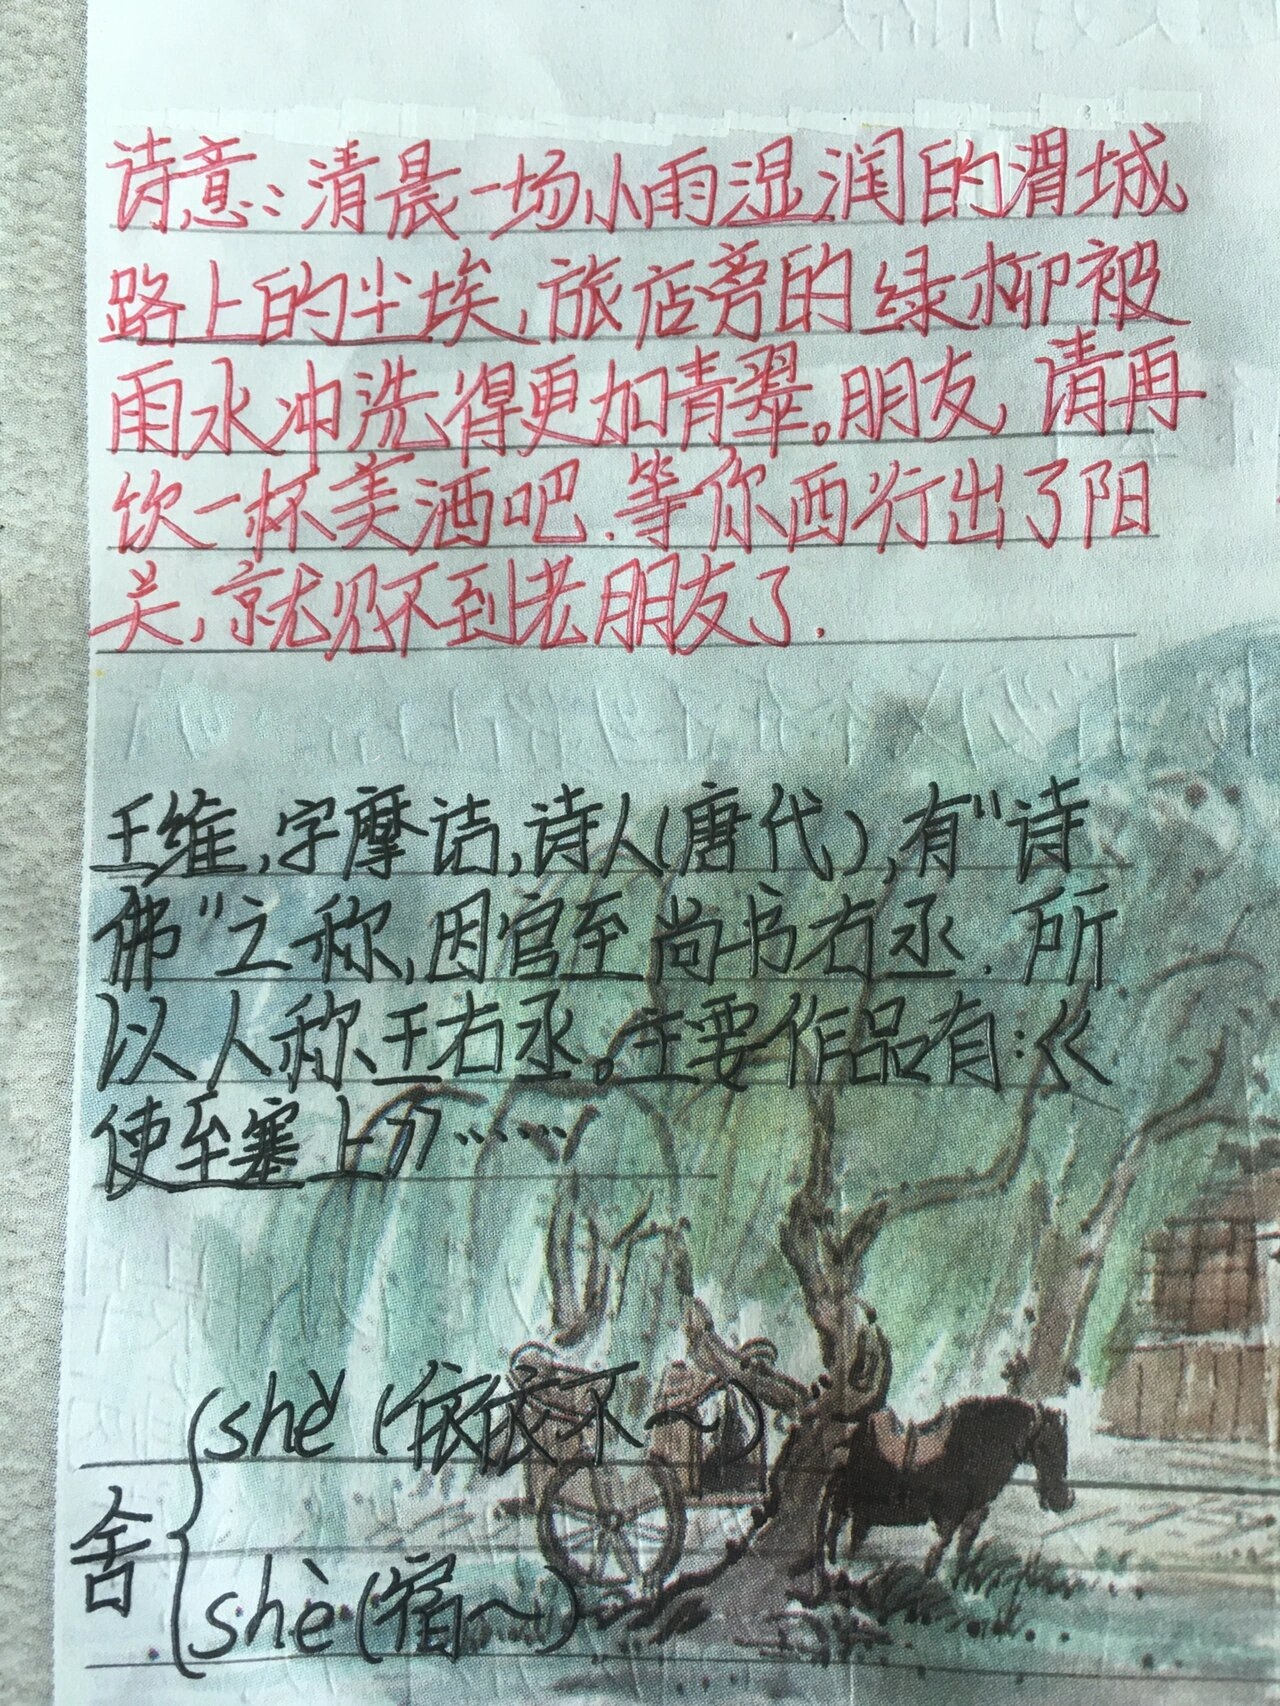 诗意：清晨一场小雨湿润的渭城
路上的尘埃，旅店旁的绿柳被
雨水冲洗得更加青翠。朋友，请再
饮一杯美酒吧.等你西行出了阳
关，就见不到老朋友了.
王维，字摩诘，诗人(唐代)，有"诗
佛"之称，因官至尚书右丞.所
以人称王右丞。主要作品有：《
使至塞上》……
舍
shě(依依不～)
shè(宿～)